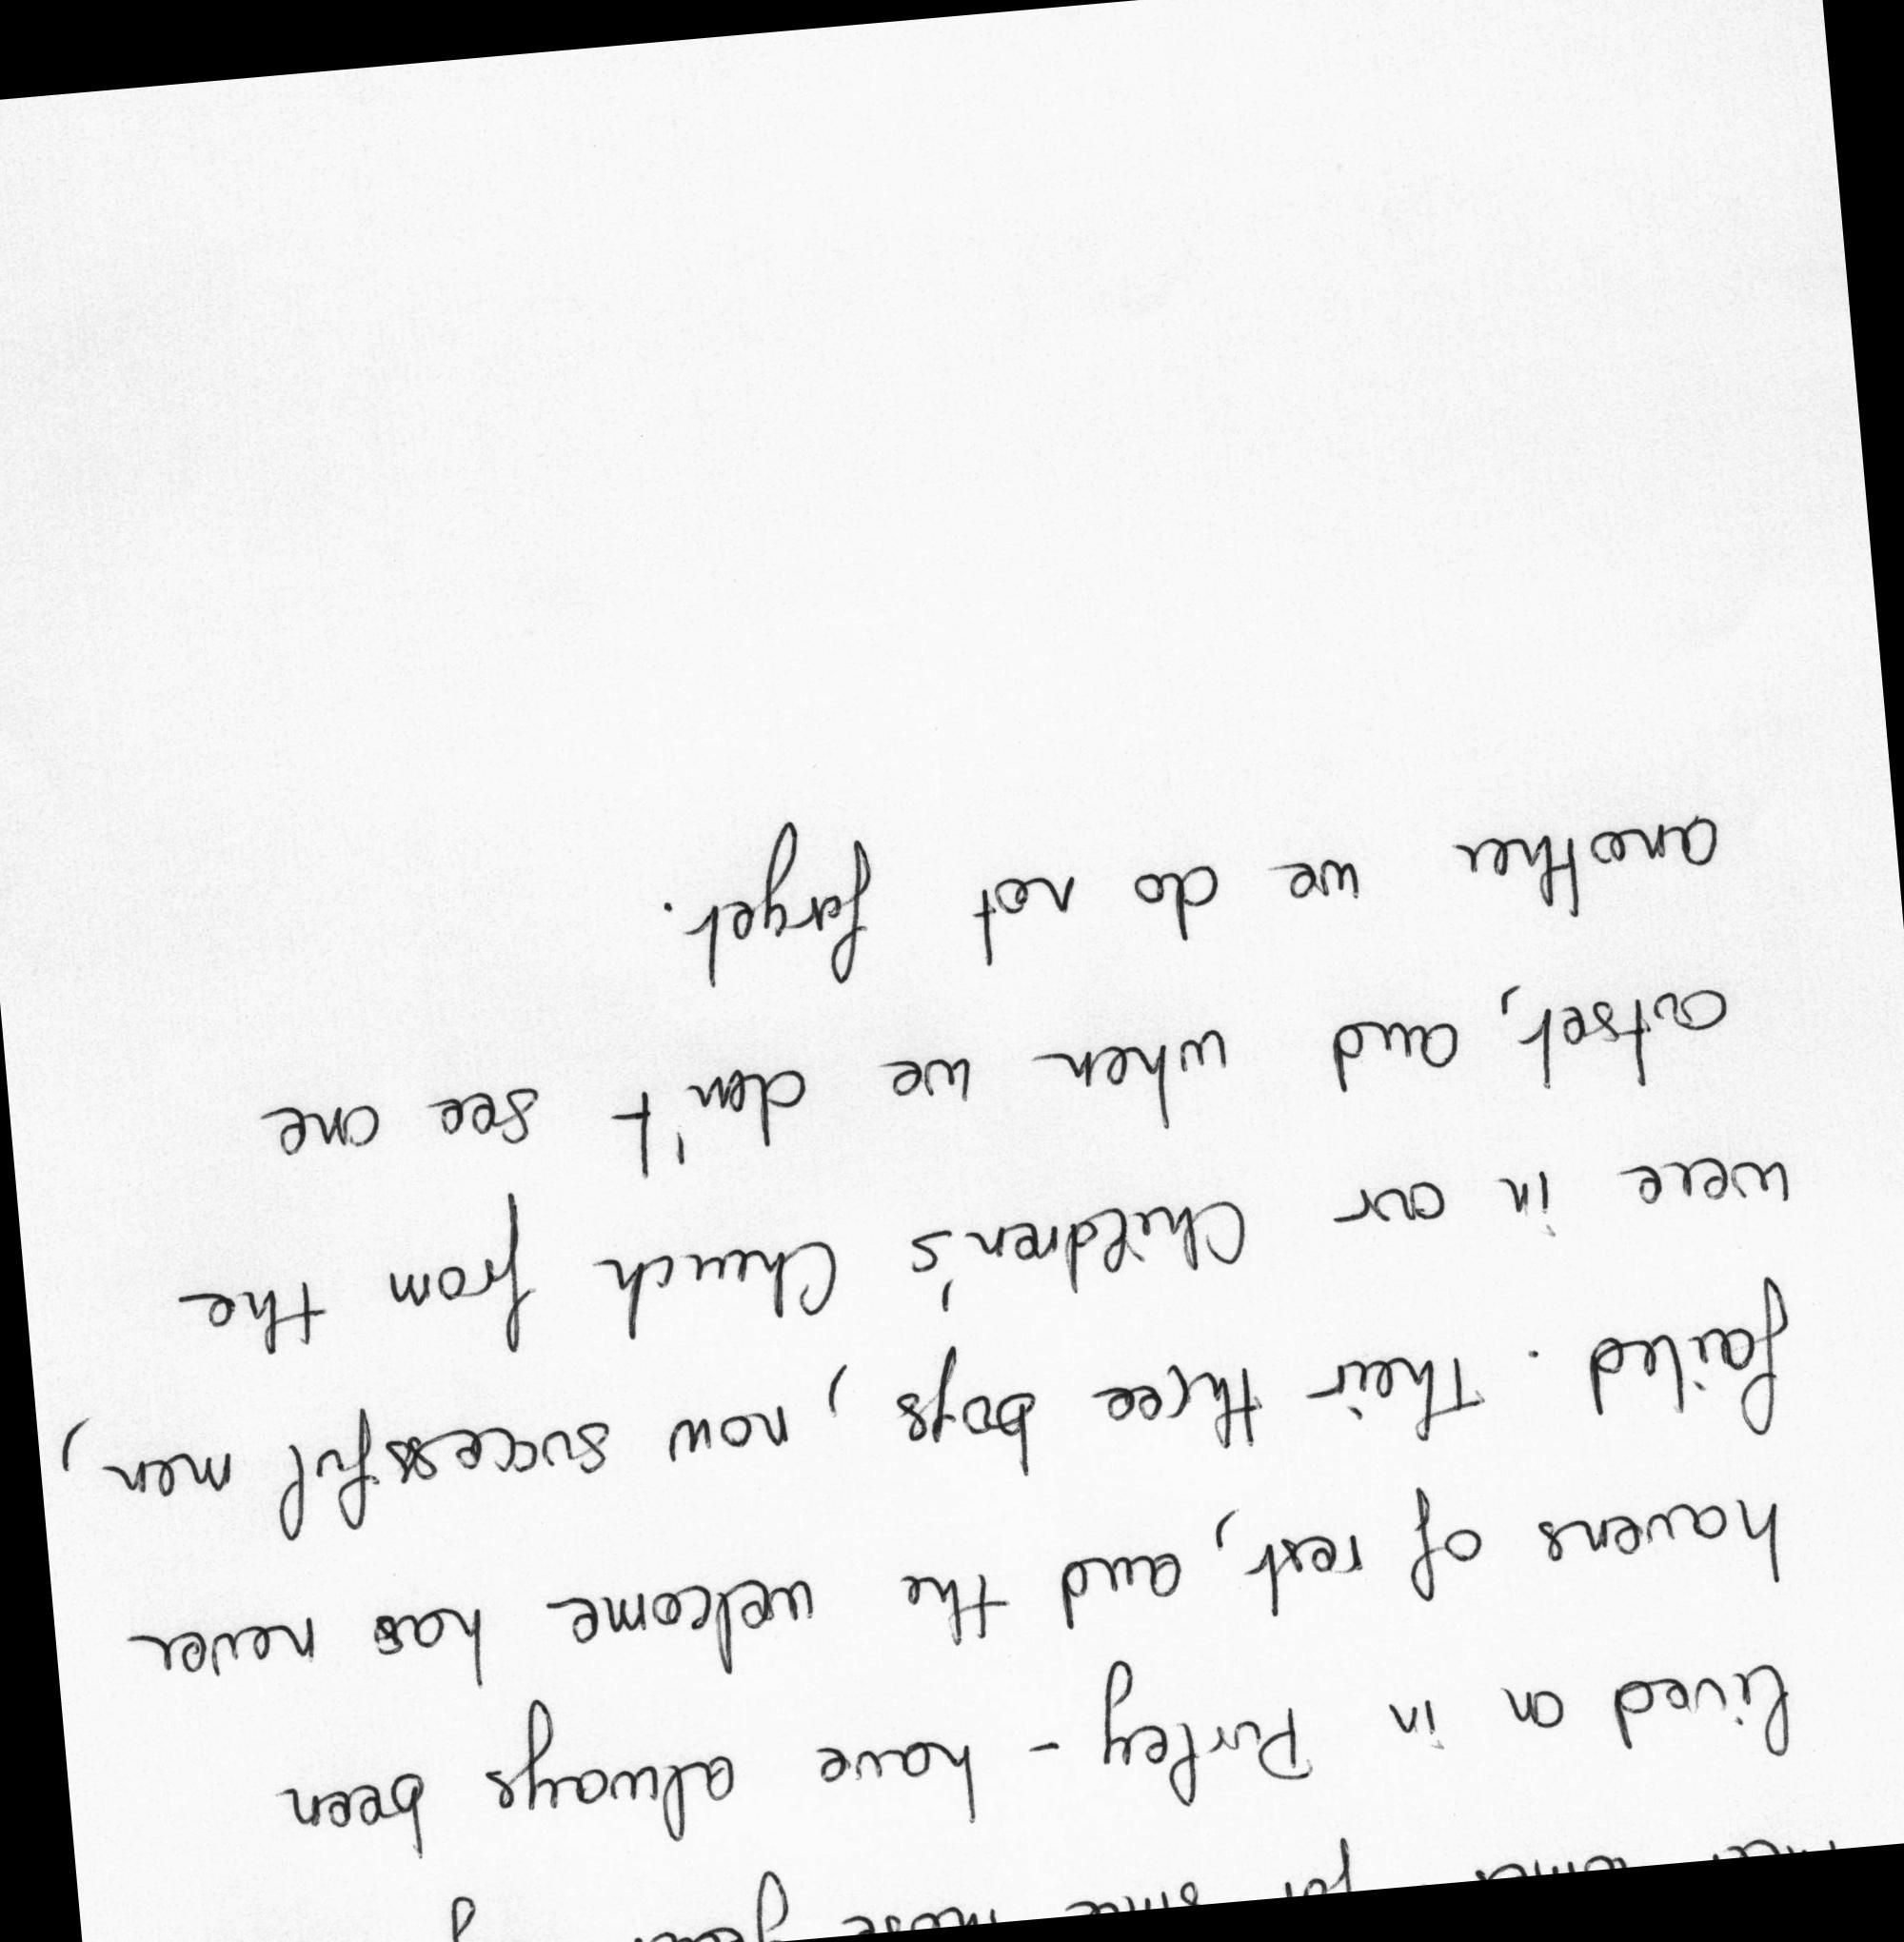 for since those
lived on in Purley - have always been
havens of rest, and the welcome has never
failed. Their three boys, now successful men,
were in our Children's Church from the
outset, and when we don't see one
another we do not forget.